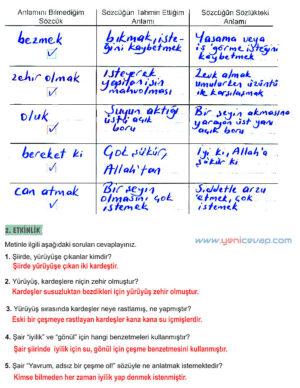 Anlamını Bilmediğim Sözcük
Sözcüğün Tahmin Ettiğim Anlamı
Sözcüğün Sözlükteki Anlamı
bezmek
bıkmak, isteğini kaybetmek
Yaşama veya iş görme isteğini kaybetmek
zehir olmak
İsteyerek yapılan işin mahvolması
Zevk almak umulurken üzüntü ile karşılaşmak
oluk
Suyun aktığı üstü açık boru
Bir şeyin akmasına yarayan üst yanı açık boru
bereket ki
Çok şükür, Allah'tan
İyi ki, Allah'a şükür ki
can atmak
Bir şeyin olmasını çok istemek
Şiddetle arzu etmek, çok istemek
2. ETKİNLİK
www.yenicevap.com
Metinle ilgili aşağıdaki soruları cevaplayınız.
1. Şiirde, yürüyüşe çıkanlar kimdir?
Şiirde yürüyüşe çıkan iki kardeştir.
2. Yürüyüş, kardeşlere niçin zehir olmuştur?
Kardeşler susuzluktan bezdikleri için yürüyüş zehir olmuştur.
3. Yürüyüş sırasında kardeşler neye rastlamış, ne yapmıştır?
Eski bir çeşmeye rastlayan kardeşler kana kana su içmişlerdir.
4. Şair "iyilik" ve "gönül" için hangi benzetmeleri kullanmıştır.
Şair şiirinde iyilik için su, gönül için çeşme benzetmesini kullanmıştır.
5. Şair "Yavrum, adsız bir çeşme ol!" sözüyle ne anlatmak istemektedir?
Kimse bilmeden her zaman iyilik yap denmek istenmiştir.